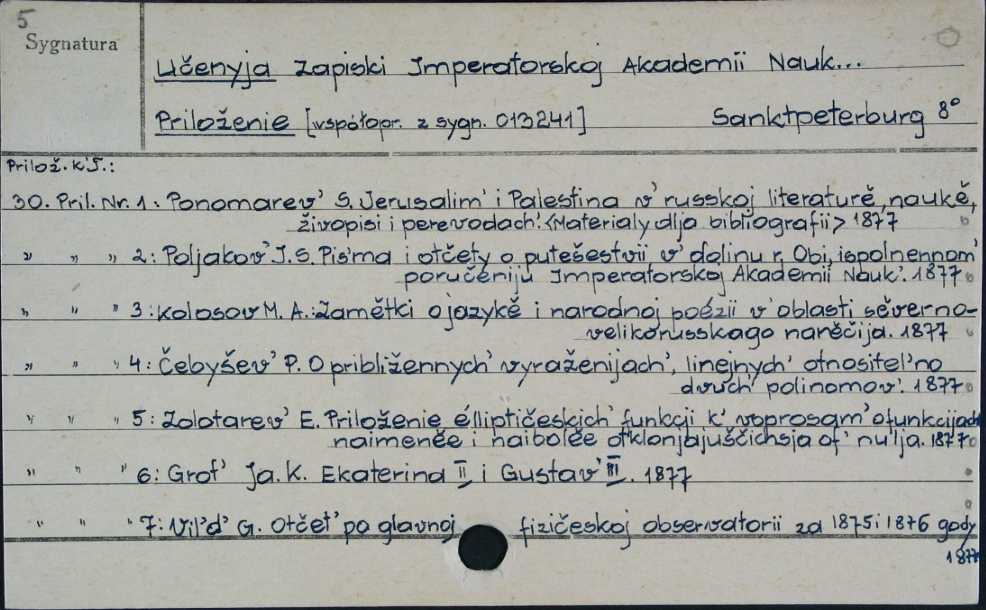 5
Sygnatura
Učenyja Zapiski Imperatorskoj Akademii Nauk...
Priloženie [współopr. z sygn. 013241] Sanktpeterburg 8°
Prilož. k T.:
30. Pril. Nr. 1: Ponomarev' S. Jerusalim' i Palestina v' russkoj literaturě, naukě,
živopisi i perevodach'. <Materialy dlja bibliografii> 1877
" " " 2: Poljakov' I. S. Pis'ma i otčety o putešestvii v' dolinu r. Obi, ispolnennom'
poručeniju Imperatorskoj Akademii Nauk'. 1877
" " " 3: Kolosov M. A.: Zamětki o jazykě i narodnoj poézii v' oblasti sěverno-
velikorusskago narěčija. 1877
" " " 4: Čebyšev' P. O približennych' vyraženijach', linejnych' otnositel'no
dvuch' polinomov'. 1877
" " " 5: Zolotarev' E. Priloženie élliptičeskich' funkcji k' voprosam' o funkcijach
naimeněe i naibolěe otklonjajuščichsja ot' nulja. 1877
" " " 6: Grot' Ja. K. Ekaterina II i Gustav' III. 1877
" " " 7: Vil'd' G. Otčet' po glavnoj fizičeskoj observatorii za 1875 i 1876 gody
1877